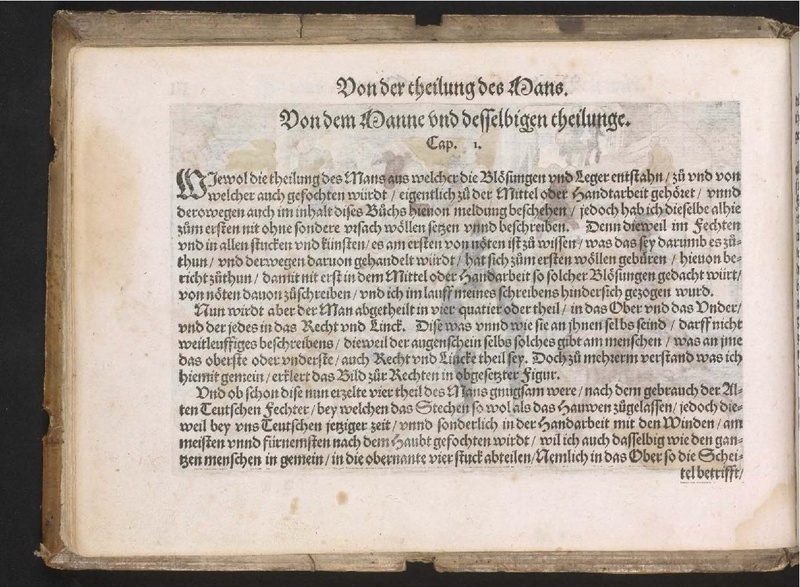 Von der theilung des Mans.
Von dem Manne vnd desselbigen theilunge.
Cap. 1.
WJewol die theilung des Mans aus welcher die Blösungen vnd Leger entstahn / zů vnd von
welcher auch gefochten würdt / eigentlich zů der Mittel oder Handtarbeit gehöret / vnnd
derowegen auch im inhalt dises Bůchs hieuon meldung beschehen / jedoch hab ich dieselbe alhie
zům ersten nit ohne sondere vrsach wöllen setzen vnnd beschreiben. Denn dieweil im Fechten
vnd in allen stucken vnd künsten / es am ersten von nöten ist zů wissen / was das sey darumb es zů-
thun / vnd derwegen daruon gehandelt würdt / hat sich zům ersten wöllen gebüren / hieuon be-
richt zůthun / damit nit erst in dem Mittel oder Handarbeit so solcher Blösungen gedacht würt /
von nöten dauon zůschreiben / vnd ich im lauff meines schreibens hindersich gezogen wurd.
Nun wirdt aber der Man abgetheilt in vier quatier oder theil / in das Ober vnd das Vnder /
vnd der jedes in das Recht vnd Linck. Dise was vnnd wie sie an jhnen selbs seind / darff nicht
weitleuffiges beschreibens / dieweil der augenschein selbs solches gibt am menschen / was an jme
das oberste oder vnderste / auch Recht vnd Lincke theil sey. Doch zů mehrerm verstand was ich
hiemit gemein / erklert das Bild zůr Rechten in obgesetzter Figur.
Vnd ob schon dise nun erzelte vier theil des Mans gnůgsam were / nach dem gebrauch der Al-
ten Teutschen Fechter / bey welchen das Stechen so wol als das Hauwen zůgelassen / jedoch die-
weil bey vns Teutschen jetziger zeit / vnnd sonderlich in der Handarbeit mit den Winden / am
meisten vnnd fürnemsten nach dem Haubt gefochten wirdt / wil ich auch dasselbig wie den gan-
tzen menschen in gemein / in die obernante vier stuck abteilen / Nemlich in das Ober so die Schei-
tel betrifft /